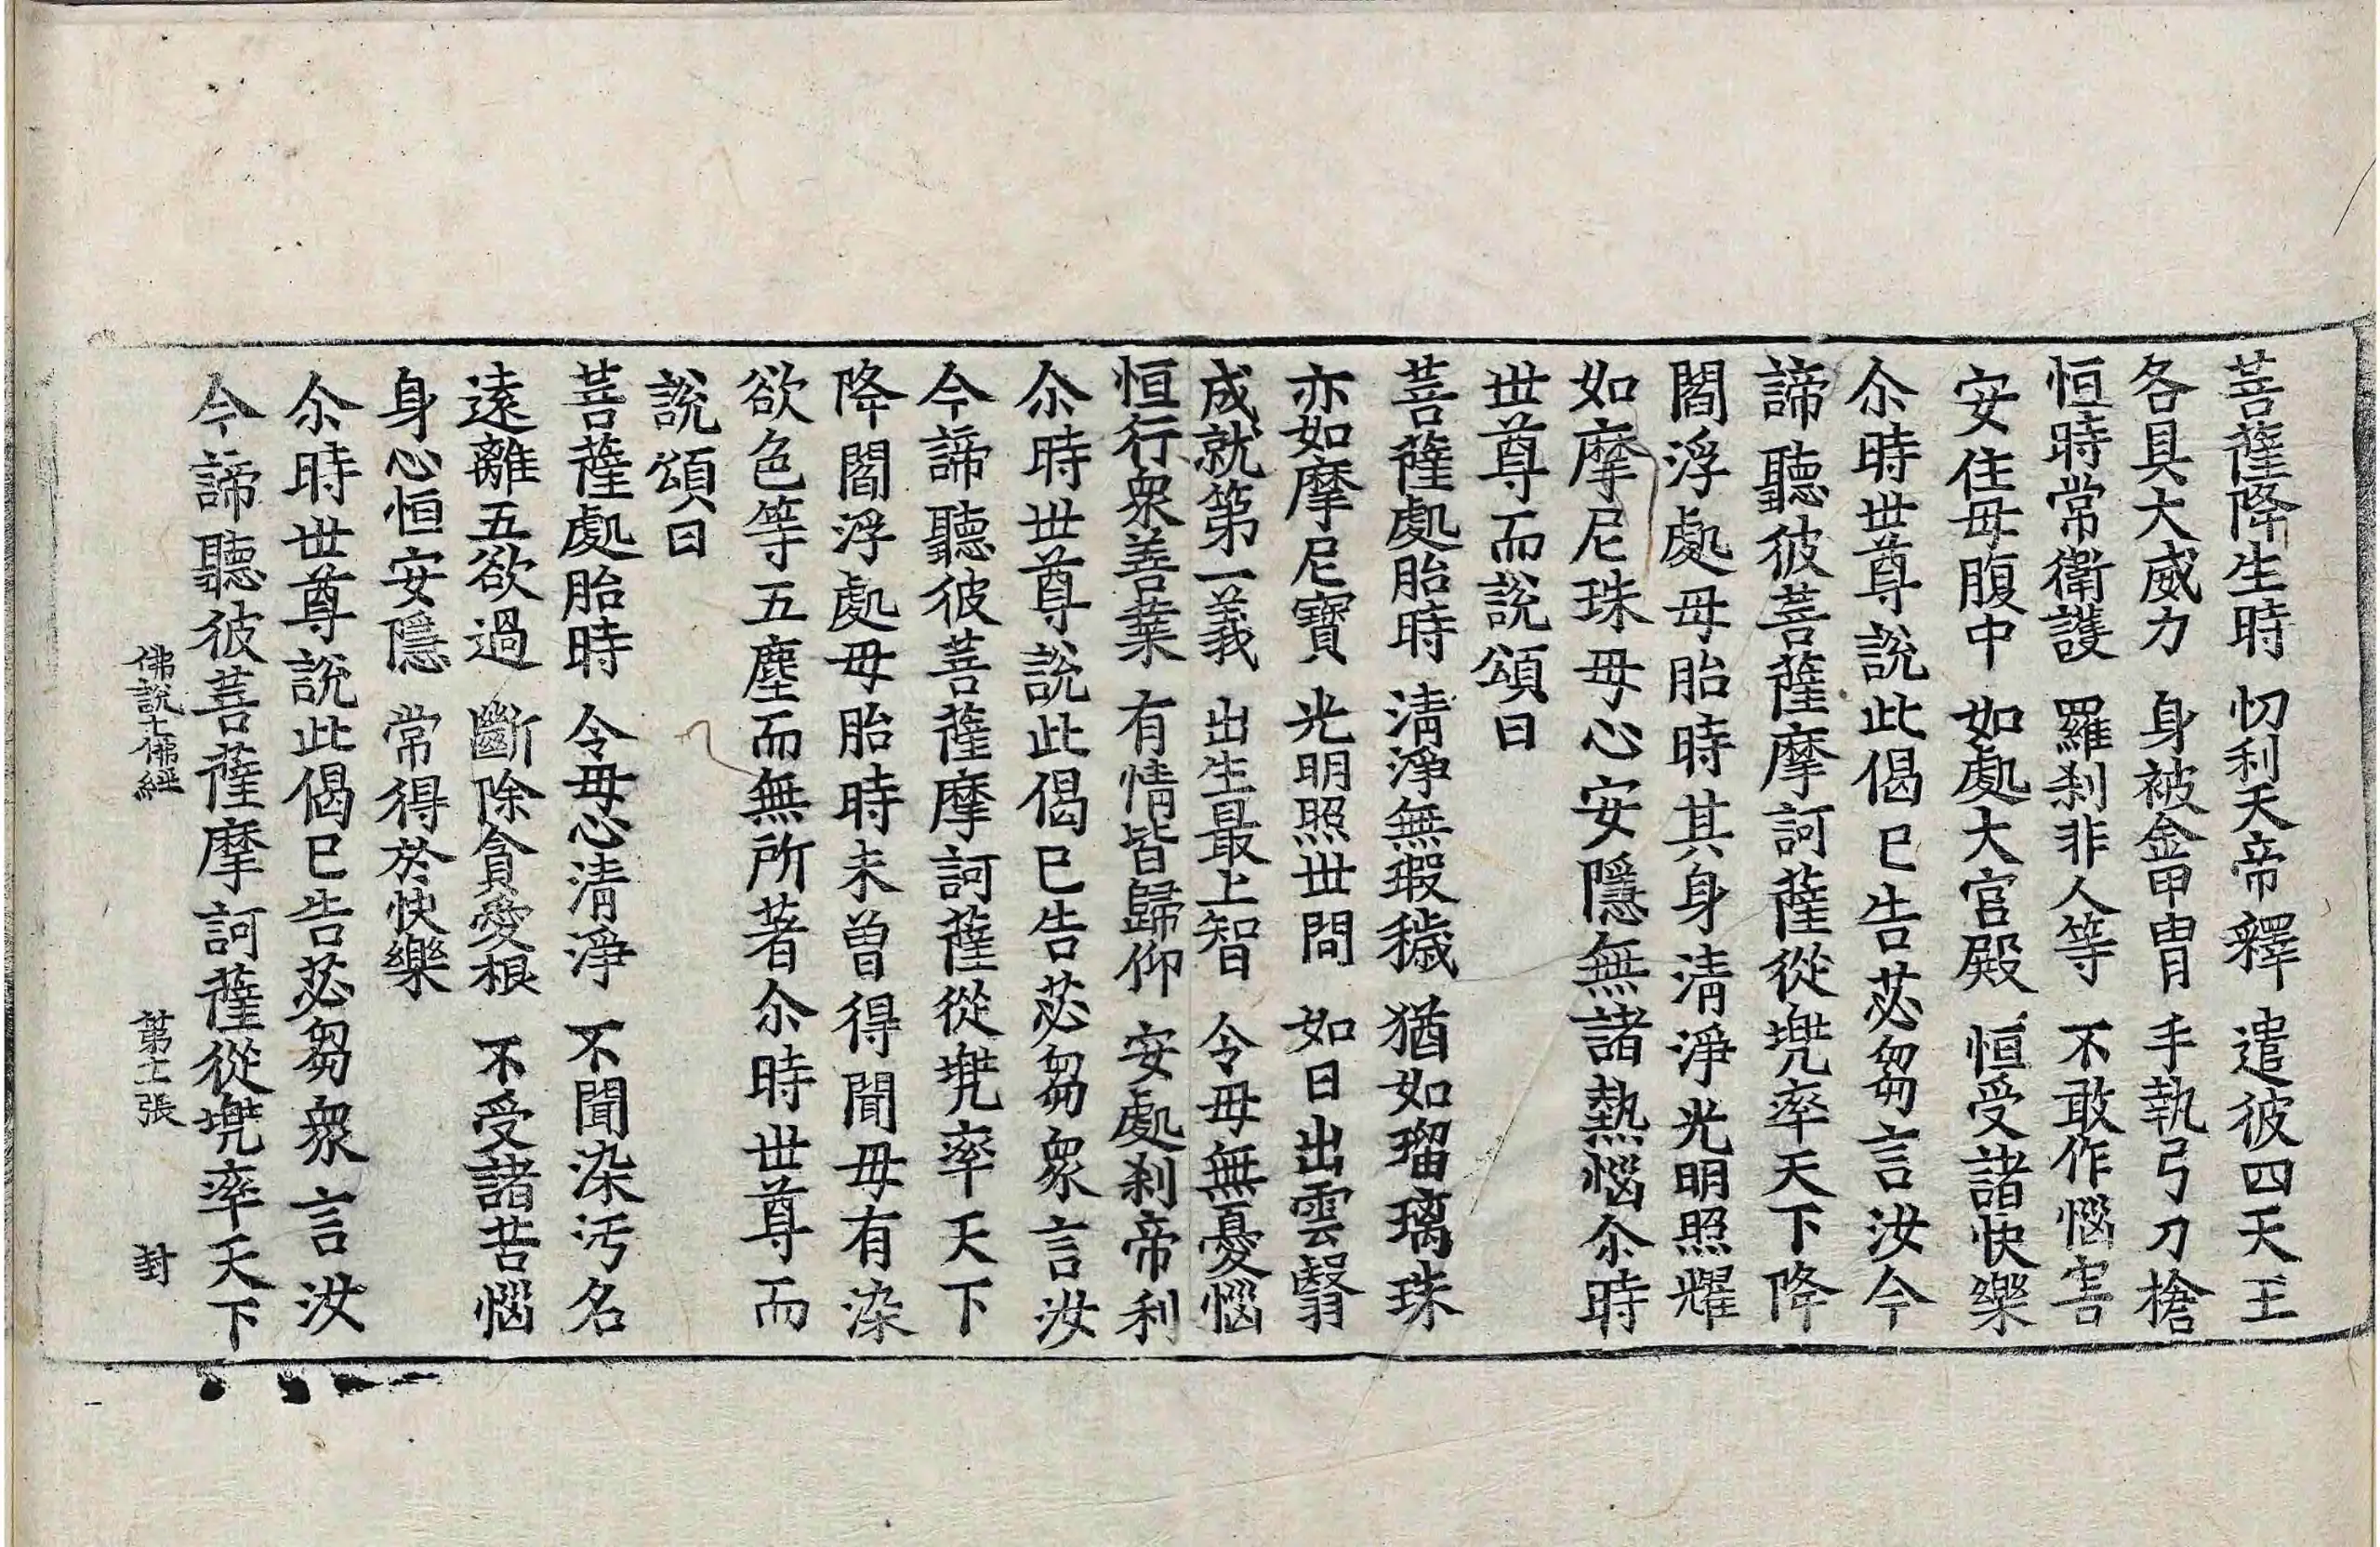 菩薩降生時 忉利天帝釋 遣彼四天王
各具大威力 身被金甲冑 手執弓刀槍
恒時常衛護 羅刹非人等 不敢作惱害
安住母腹中 如處大宮殿 恒受諸快樂
尒時世尊說此偈已告苾芻言汝今
諦聽彼菩薩摩訶薩從兠率天下降
閻浮處母胎時其身清淨光明照耀
如摩尼珠母心安隱無諸熱惱尒時
世尊而說頌曰
菩薩處胎時 清淨無瑕穢 猶如瑠璃珠
亦如摩尼寶 光明照世間 如日出雲翳
成就第一義 出生最上智 令母無憂惱
恒行衆善業 有情皆歸仰 安處刹帝利
尒時世尊說此偈已告苾芻衆言汝
今諦聽彼菩薩摩訶薩從兠率天下
降閻浮處母胎時未曾得聞母有染
欲色等五塵而無所著尒時世尊而
說頌曰
菩薩處胎時 令母心清淨 不聞染汚名
遠離五欲過 斷除貪愛根 不受諸苦惱
身心恒安隱 常得於快樂
尒時世尊說此偈已告苾芻衆言汝
今諦聽彼菩薩摩訶薩從兠率天下
佛說七佛經 第十張 封